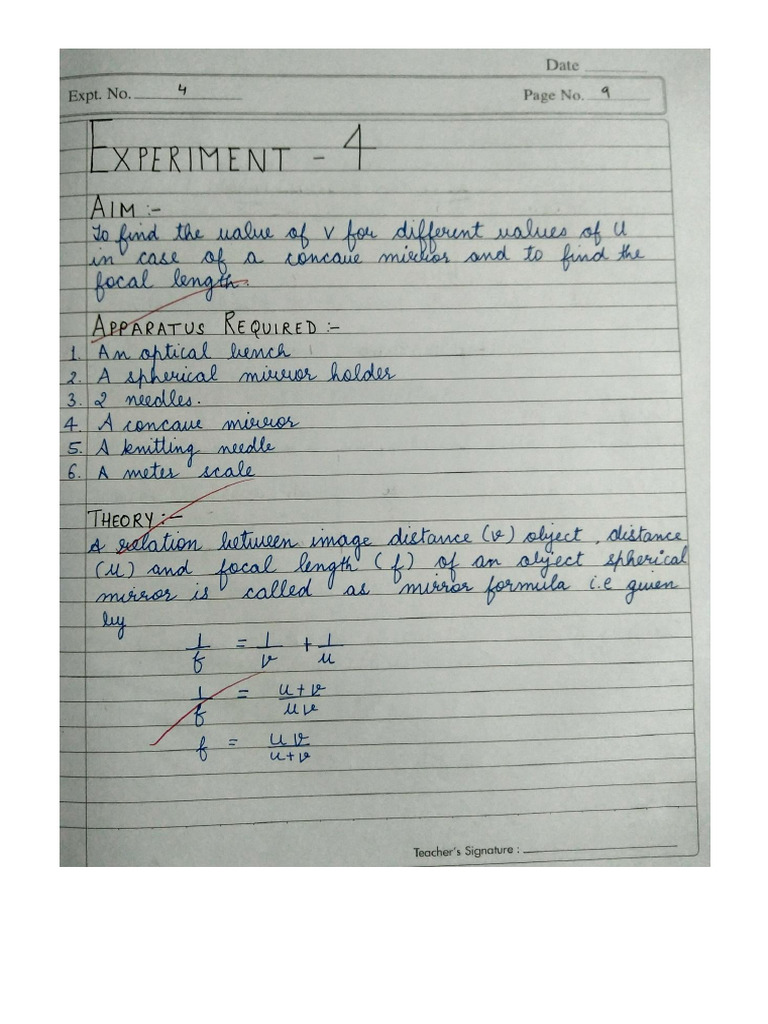 Date
Expt. No. 4
Page No. 9
EXPERIMENT - 4
AIM :-
To find the value of v for different values of U
in case of a concave mirror and to find the
focal length.
APPARATUS REQUIRED :-
1. An optical bench
2. A spherical mirror holder
3. 2 needles.
4. A concave mirror
5. A knitting needle
6. A meter scale
THEORY :-
A relation between image distance (v) object , distance
(u) and focal length (f) of an object spherical
mirror is called as mirror formula i.e given
by
1/f = 1/v + 1/u
1/f = u+v/uv
f = uv/u+v
Teacher's Signature :